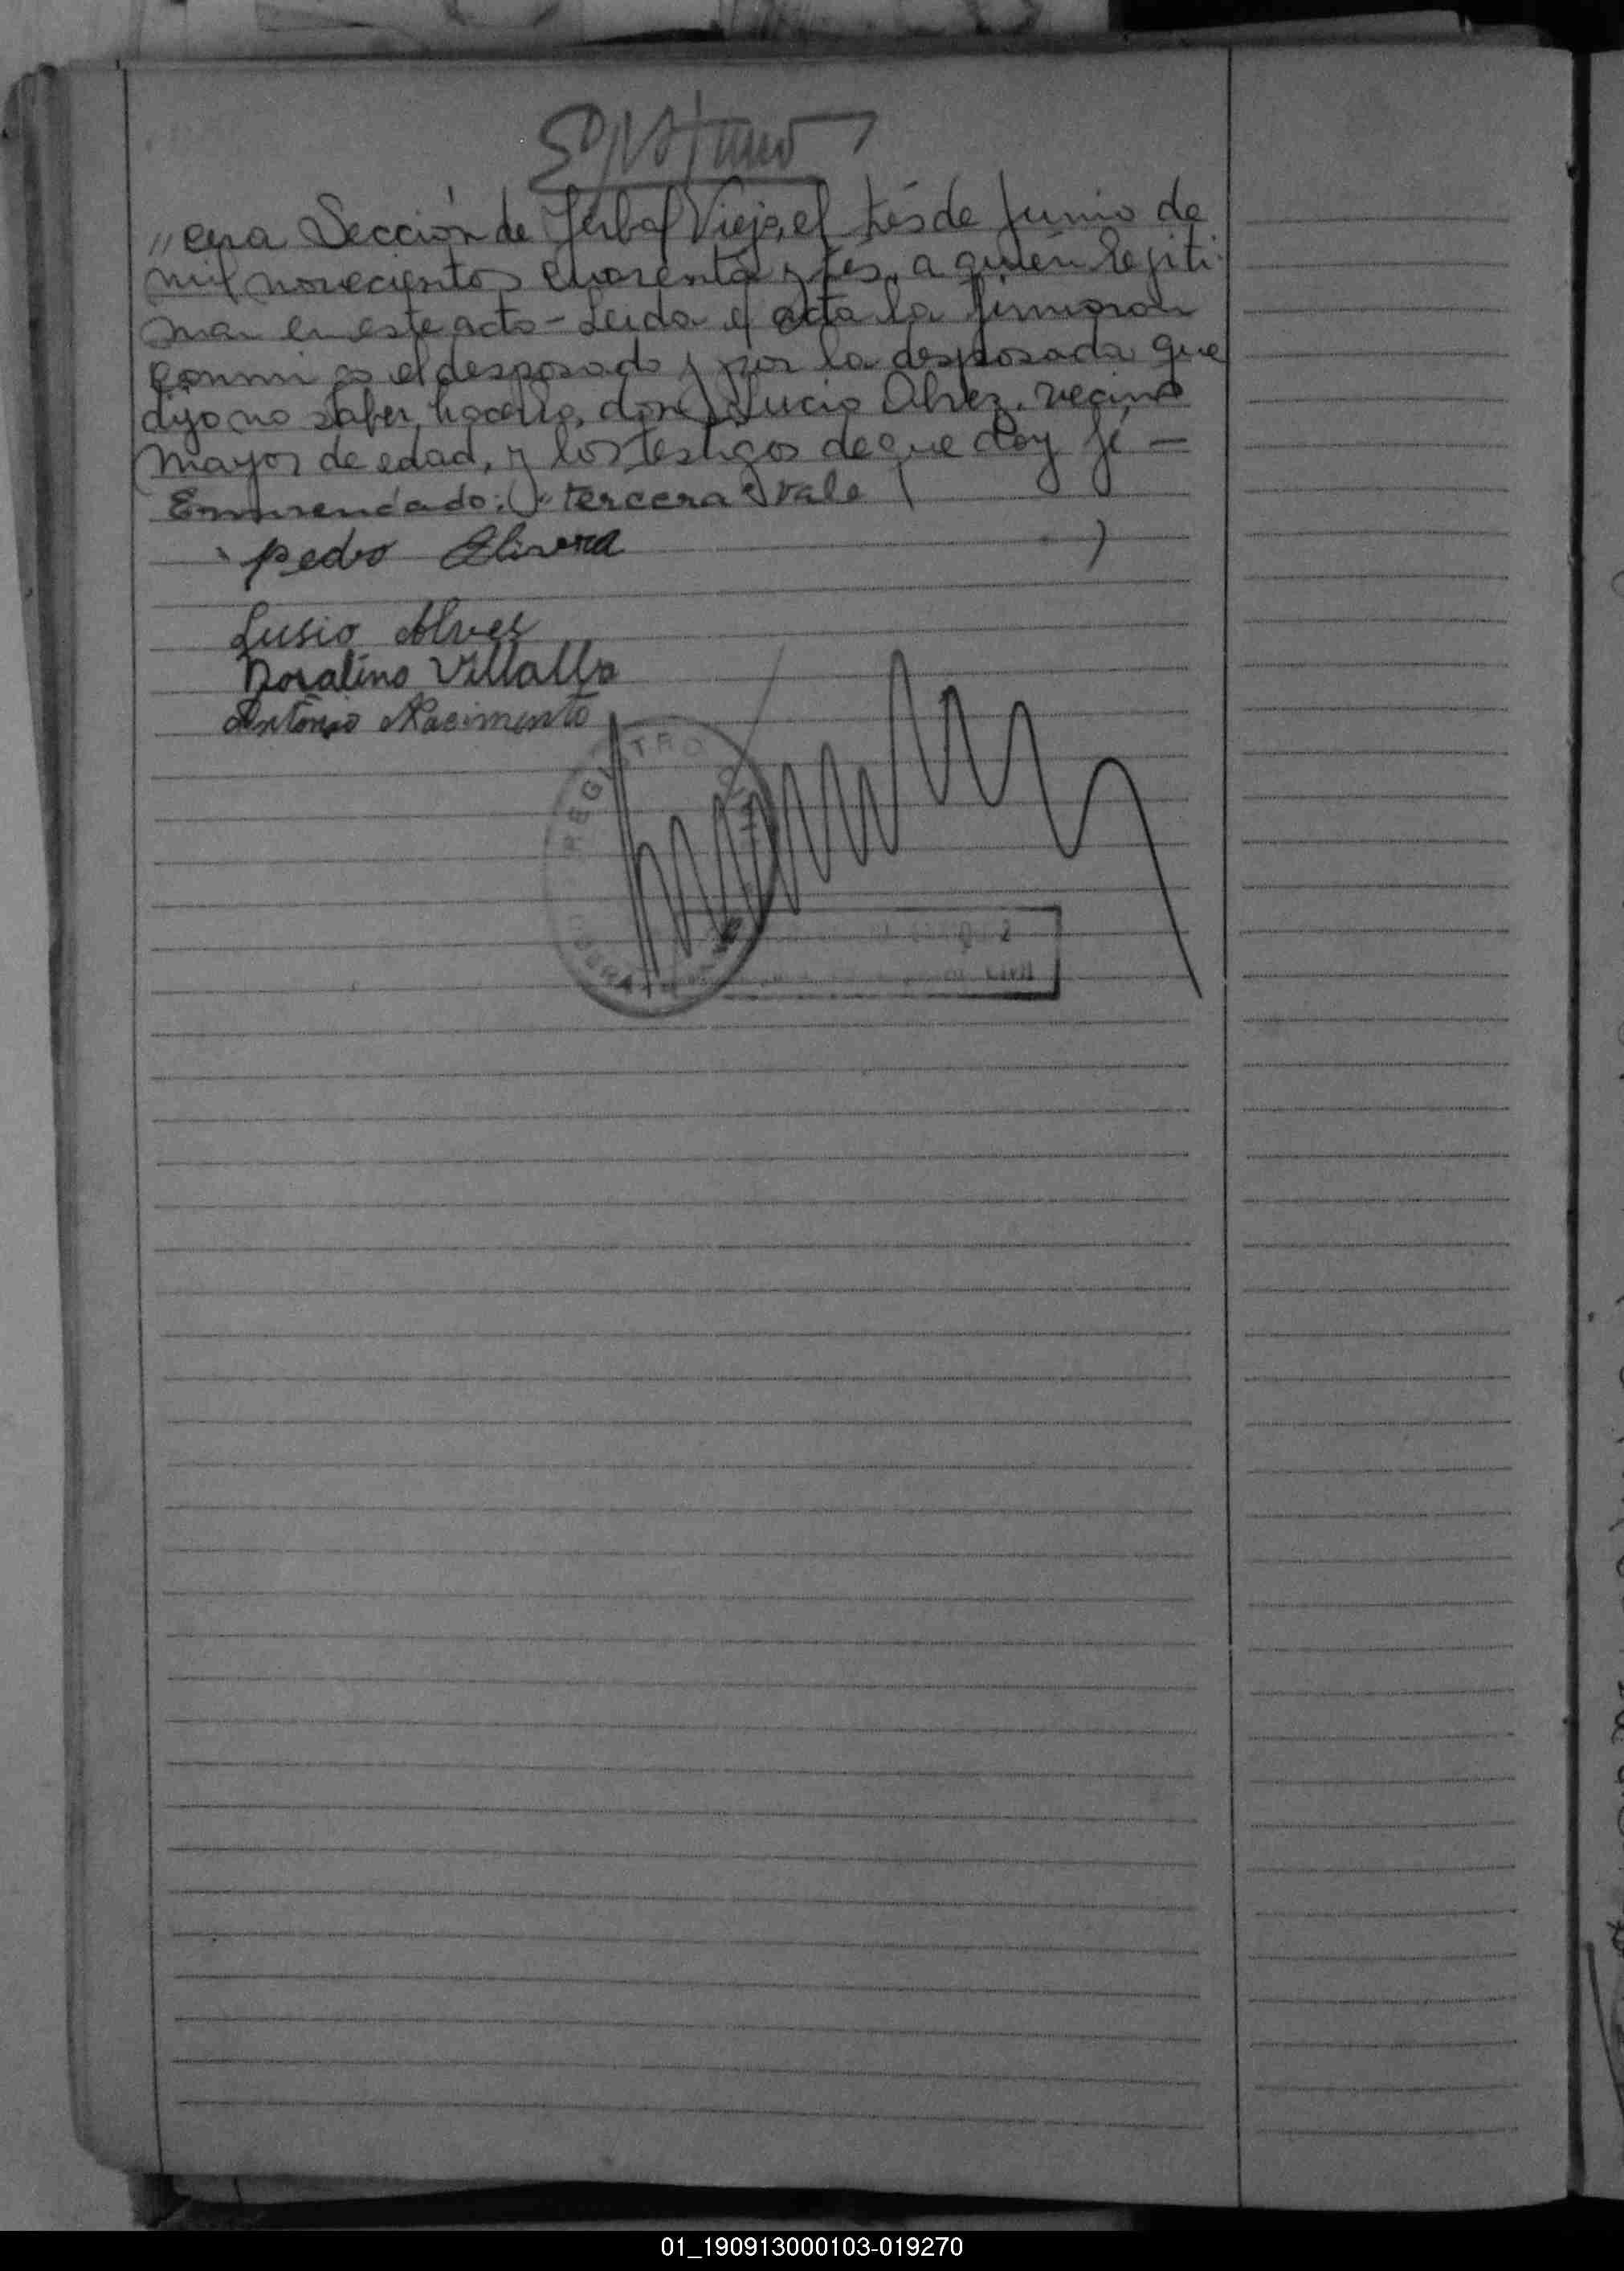 "cera Sección de Yerbal Viejo, el trés de Junio de
mil novecientos cuarenta y tés, a quién legiti
man en este acto - Leida el acta la firmaron
conmigo el desposado y por la desposada que
dijo no saber hacerlo, don Lucio Alvez, vecino
mayor de edad, y los testigos de que doy fé —
Enmendado: "tercera" Vale
Pedro Olivera
Lusio Alvez
Doralino Villalba
Antônio Nacimento
REGISTRO CIVIL
OBERA
CIVIL
01_190913000103-019270